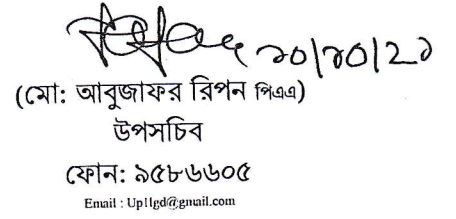 ২০/১০/২১
(মো: আবুজাফর রিপন পিএএ)
উপসচিব
ফোন: ৯৫৮৬৬০৫
Email : Up1lgd@gmail.com